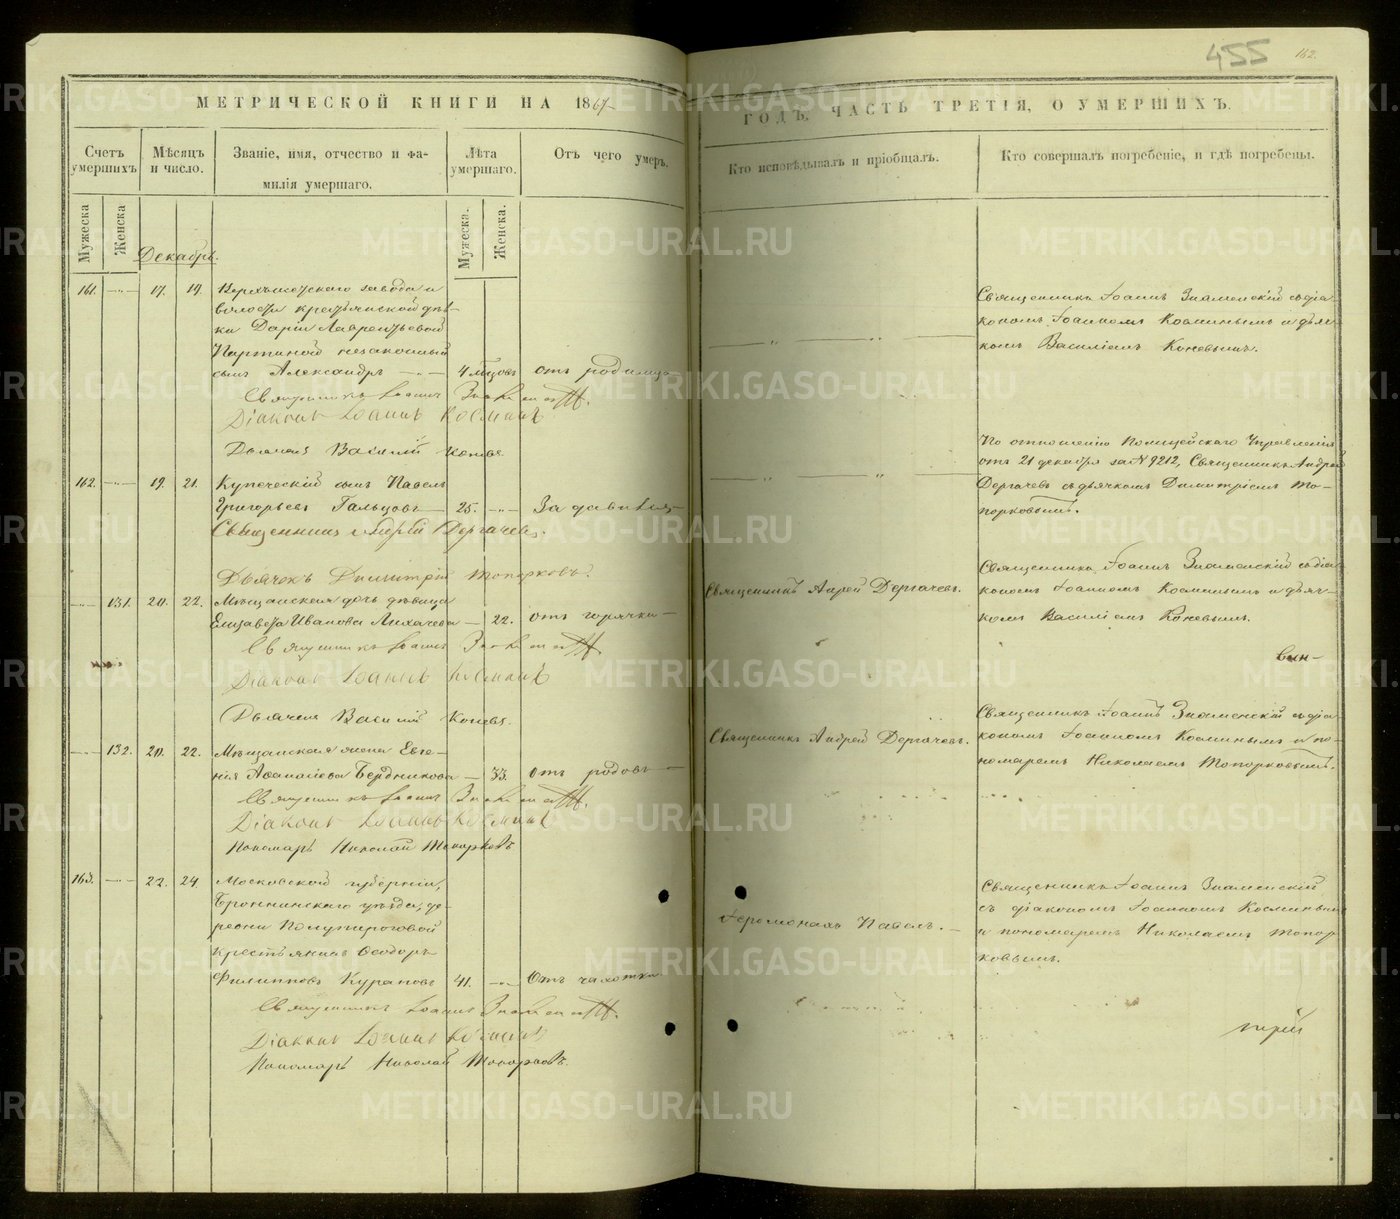 455
162.
МЕТРИЧЕСКОЙ КНИГИ НА 1867
ГОДЪ, ЧАСТЬ ТРЕТІЯ, О УМЕРШИХЪ.
Счетъ умершихъ
Мѣсяцъ и число.
Званіе, имя, отчество и фа-
милія умершаго.
Лѣта умершаго.
Отъ чего умеръ.
Кто исповѣдывалъ и пріобщалъ.
Кто совершалъ погребеніе, и гдѣ погребены.
Мужеска
Женска
Мужеска.
Женска.
Декабрь.
161. 17. 19. Верхъисетскаго завода и
волости крестьянской дѣв-
ки Даріи Лаврентьевой
незаконный
сынъ Александръ 4 мѣсцовъ отъ родимца
Священникъ Іоаннъ Знаменскій съ діа-
кономъ Іоанномъ Косминымъ и дьяч-
комъ Василіемъ Коневымъ.
Священникъ Іоаннъ
Діаконъ Іоаннъ Косминъ
Дьячекъ Василій Коневъ
162. 19. 21. Купеческій сынъ Павелъ
Григорьевъ Гальцовъ 25.
По отношенію Полицейскаго Управленія
отъ 21 декабря за № 9212, Священникъ Андрей
Дергачевъ съ дьячкомъ Димитріемъ То-
порковымъ.
Священникъ Андрей Дергачевъ.
Дьячекъ Димитрій Топорковъ.
131. 20. 22. Мѣщанская дочь дѣвица
Елизавета Иванова Лихачева 22. отъ горячки
Священникъ Андрей Дергачевъ.
Священникъ Іоаннъ Знаменскій съ діа-
кономъ Іоанномъ Косминымъ и дьяч-
комъ Василіемъ Коневымъ.
Священникъ Іоаннъ
Діаконъ Іоаннъ Косминъ
Дьячекъ Василій Коневъ.
132. 20. 22. Мѣщанская жена Евге-
нія Аѳанасіева Бердникова 33. Отъ родовъ
Священникъ Андрей Дергачевъ.
Священникъ Іоаннъ Знаменскій съ діа-
кономъ Іоанномъ Косминымъ и по-
номаремъ Николаемъ Топорковымъ.
Священникъ Іоаннъ
Діаконъ Іоаннъ Косминъ
Пономарь Николай Топорковъ
163. 22. 24. Московской губерніи,
Бронницкаго уѣзда, де-
ревни
крестьянинъ Ѳеодоръ
Филипповъ Курановъ 41. Отъ чахотки
Іеромонахъ Павелъ.
Священникъ Іоаннъ Знаменскій
съ діакономъ Іоанномъ Косминымъ
и пономаремъ Николаемъ Топор-
ковымъ.
Священникъ Іоаннъ
Діаконъ Іоаннъ Косминъ
Пономарь Николай Топорковъ.
METRIKI.GASO-URAL.RU